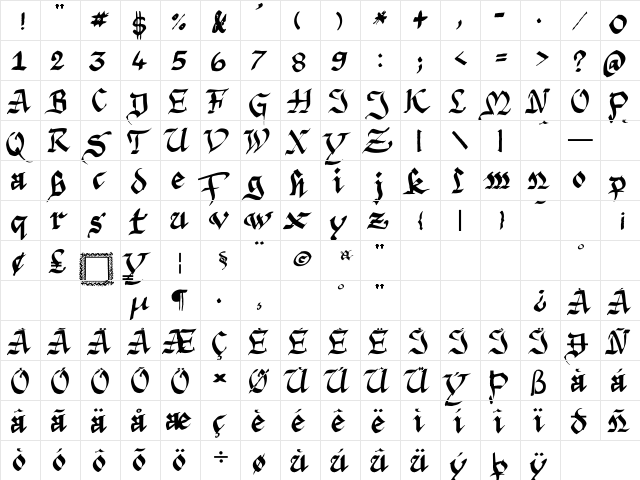 ! " # $ % & ' ( ) * + , - . / 0
1 2 3 4 5 6 7 8 9 : ; < = > ? @
A B C D E F G H I J K L M N O P
Q R S T U V W X Y Z | \ | —
a b c d e f g h i j k l m n o p
q r s t u v w x y z { | } ¡
¢ £ ¥ ¦ § ¨ © ª " °
µ ¶ · ¸ ° " ¿ À Á
Â Ã Ä Å Æ Ç È É Ê Ë Ì Í Î Ï Ð Ñ
Ò Ó Ô Õ Ö × Ø Ù Ú Û Ü Ý Þ ß à á
â ã ä å æ ç è é ê ë ì í î ï ð ñ
ò ó ô õ ö ÷ ø ù ú û ü ý þ ÿ